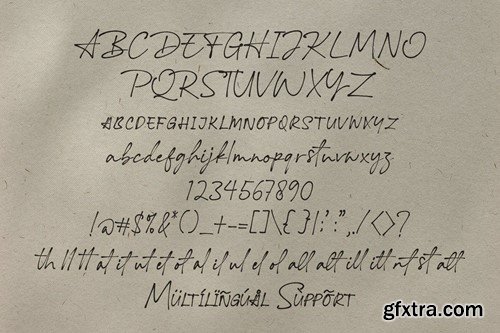 ABCDEFGHIJKLMNO
PQRSTUVWXYZ
ABCDEFGHIJKLMNOPQRSTUVWXYZ
abcdefghijklmnopqrstuvwxyz
1234567890
!@#$%&*()_+-=[]\{}|;':",./<>?
th ll tt at it ut et ot al il ul el ol all alt ill itt nt st att
Mültílïñgúâl Süppõrt
gfxtra.com